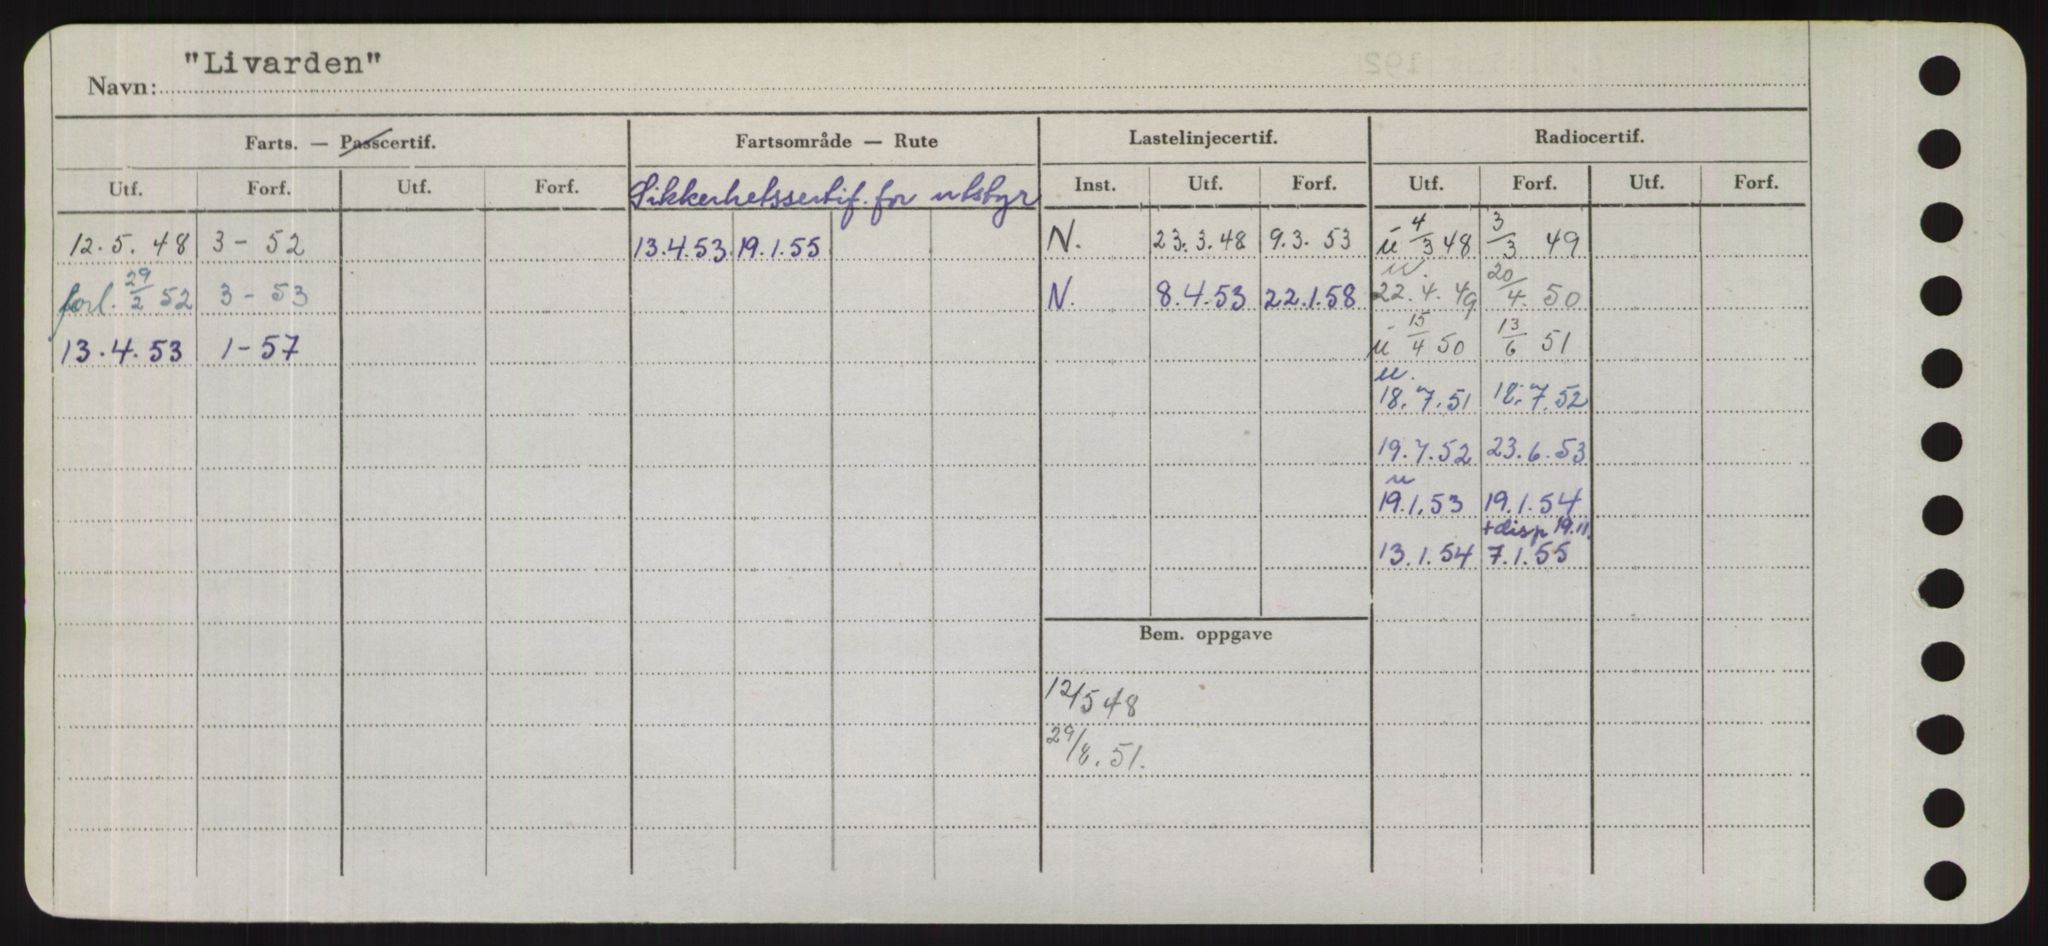 Navn: "Livarden"
Farts. — Passcertif. Fartsområde — Rute Lastelinjecertif. Radiocertif.
Utf. Forf. Utf. Forf. Sikkerhetssertif. for utstyr Inst. Utf. Forf. Utf. Forf. Utf. Forf.
12.5.48 3 - 52 13.4.53 19.1.55 N. 23.3.48 9.3.53 u 4/3 48 3/3 49
u.
forl. 29/2 52 3 - 53 N. 8.4.53 22.1.58 22.4.49 20/4. 50
13.4.53 1 - 57 u 15/4 50 13/6 51
u.
18.7.51 18.7.52
19.7.52 23.6.53
u
19.1.53 19.1.54
+disp 19.11.
13.1.54 7.1.55
Bem. oppgave
12/5 48
29/8.51.